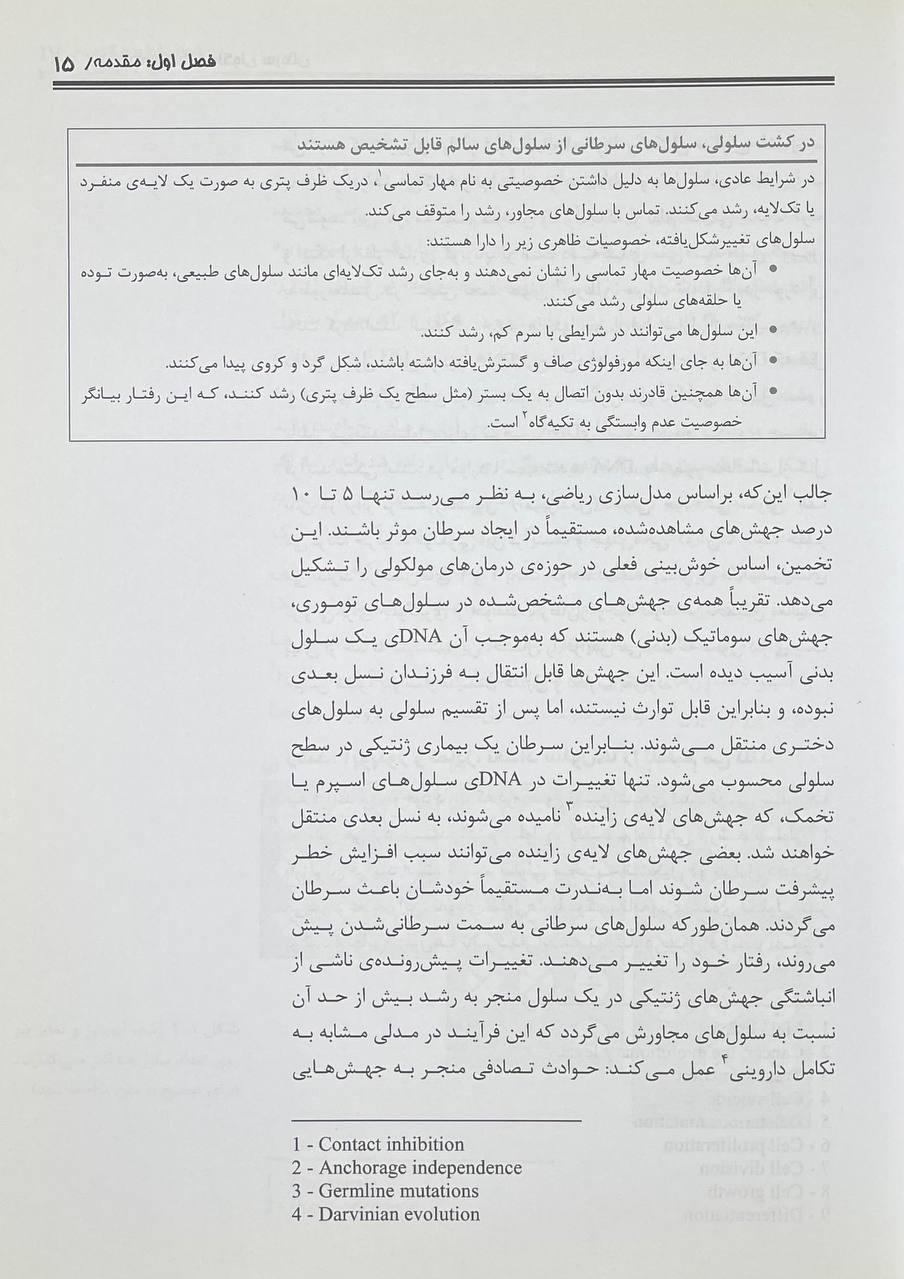 فصل اول: مقدمه/ ۱۵
در کشت سلولی، سلول‌های سرطانی از سلول‌های سالم قابل تشخیص هستند
در شرایط عادی، سلول‌ها به دلیل داشتن خصوصیتی به نام مهار تماسی۱، دریک ظرف پتری به صورت یک لایه‌ی منفرد
یا تک‌لایه، رشد می‌کنند. تماس با سلول‌های مجاور، رشد را متوقف می‌کند.
سلول‌های تغییرشکل‌یافته، خصوصیات ظاهری زیر را دارا هستند:
• آن‌ها خصوصیت مهار تماسی را نشان نمی‌دهند و به‌جای رشد تک‌لایه‌ای مانند سلول‌های طبیعی، به‌صورت توده
یا حلقه‌های سلولی رشد می‌کنند.
• این سلول‌ها می‌توانند در شرایطی با سرم کم، رشد کنند.
• آن‌ها به جای اینکه مورفولوژی صاف و گسترش‌یافته داشته باشند، شکل گرد و کروی پیدا می‌کنند.
• آن‌ها همچنین قادرند بدون اتصال به یک بستر (مثل سطح یک ظرف پتری) رشد کنند، که این رفتار بیانگر
خصوصیت عدم وابستگی به تکیه‌گاه۲ است.
جالب این‌که، براساس مدل‌سازی ریاضی، به نظر می‌رسد تنها ۵ تا ۱۰
درصد جهش‌های مشاهده‌شده، مستقیماً در ایجاد سرطان موثر باشند. این
تخمین، اساس خوش‌بینی فعلی در حوزه‌ی درمان‌های مولکولی را تشکیل
می‌دهد. تقریباً همه‌ی جهش‌های مشخص‌شده در سلول‌های توموری،
جهش‌های سوماتیک (بدنی) هستند که به‌موجب آن DNAی یک سلول
بدنی آسیب دیده است. این جهش‌ها قابل انتقال به فرزندان نسل بعدی
نبوده، و بنابراین قابل توارث نیستند، اما پس از تقسیم سلولی به سلول‌های
دختری منتقل می‌شوند. بنابراین سرطان یک بیماری ژنتیکی در سطح
سلولی محسوب می‌شود. تنها تغییرات در DNAی سلول‌های اسپرم یا
تخمک، که جهش‌های لایه‌ی زاینده۳ نامیده می‌شوند، به نسل بعدی منتقل
خواهند شد. بعضی جهش‌های لایه‌ی زاینده می‌توانند سبب افزایش خطر
پیشرفت سرطان شوند اما به‌ندرت مستقیماً خودشان باعث سرطان
می‌گردند. همان‌طورکه سلول‌های سرطانی به سمت سرطانی‌شدن پیش
می‌روند، رفتار خود را تغییر می‌دهند. تغییرات پیش‌رونده‌ی ناشی از
انباشتگی جهش‌های ژنتیکی در یک سلول منجر به رشد بیش از حد آن
نسبت به سلول‌های مجاورش می‌گردد که این فرآیند در مدلی مشابه به
تکامل داروینی۴ عمل می‌کند: حوادث تصادفی منجر به جهش‌هایی
1 - Contact inhibition
2 - Anchorage independence
3 - Germline mutations
4 - Darvinian evolution